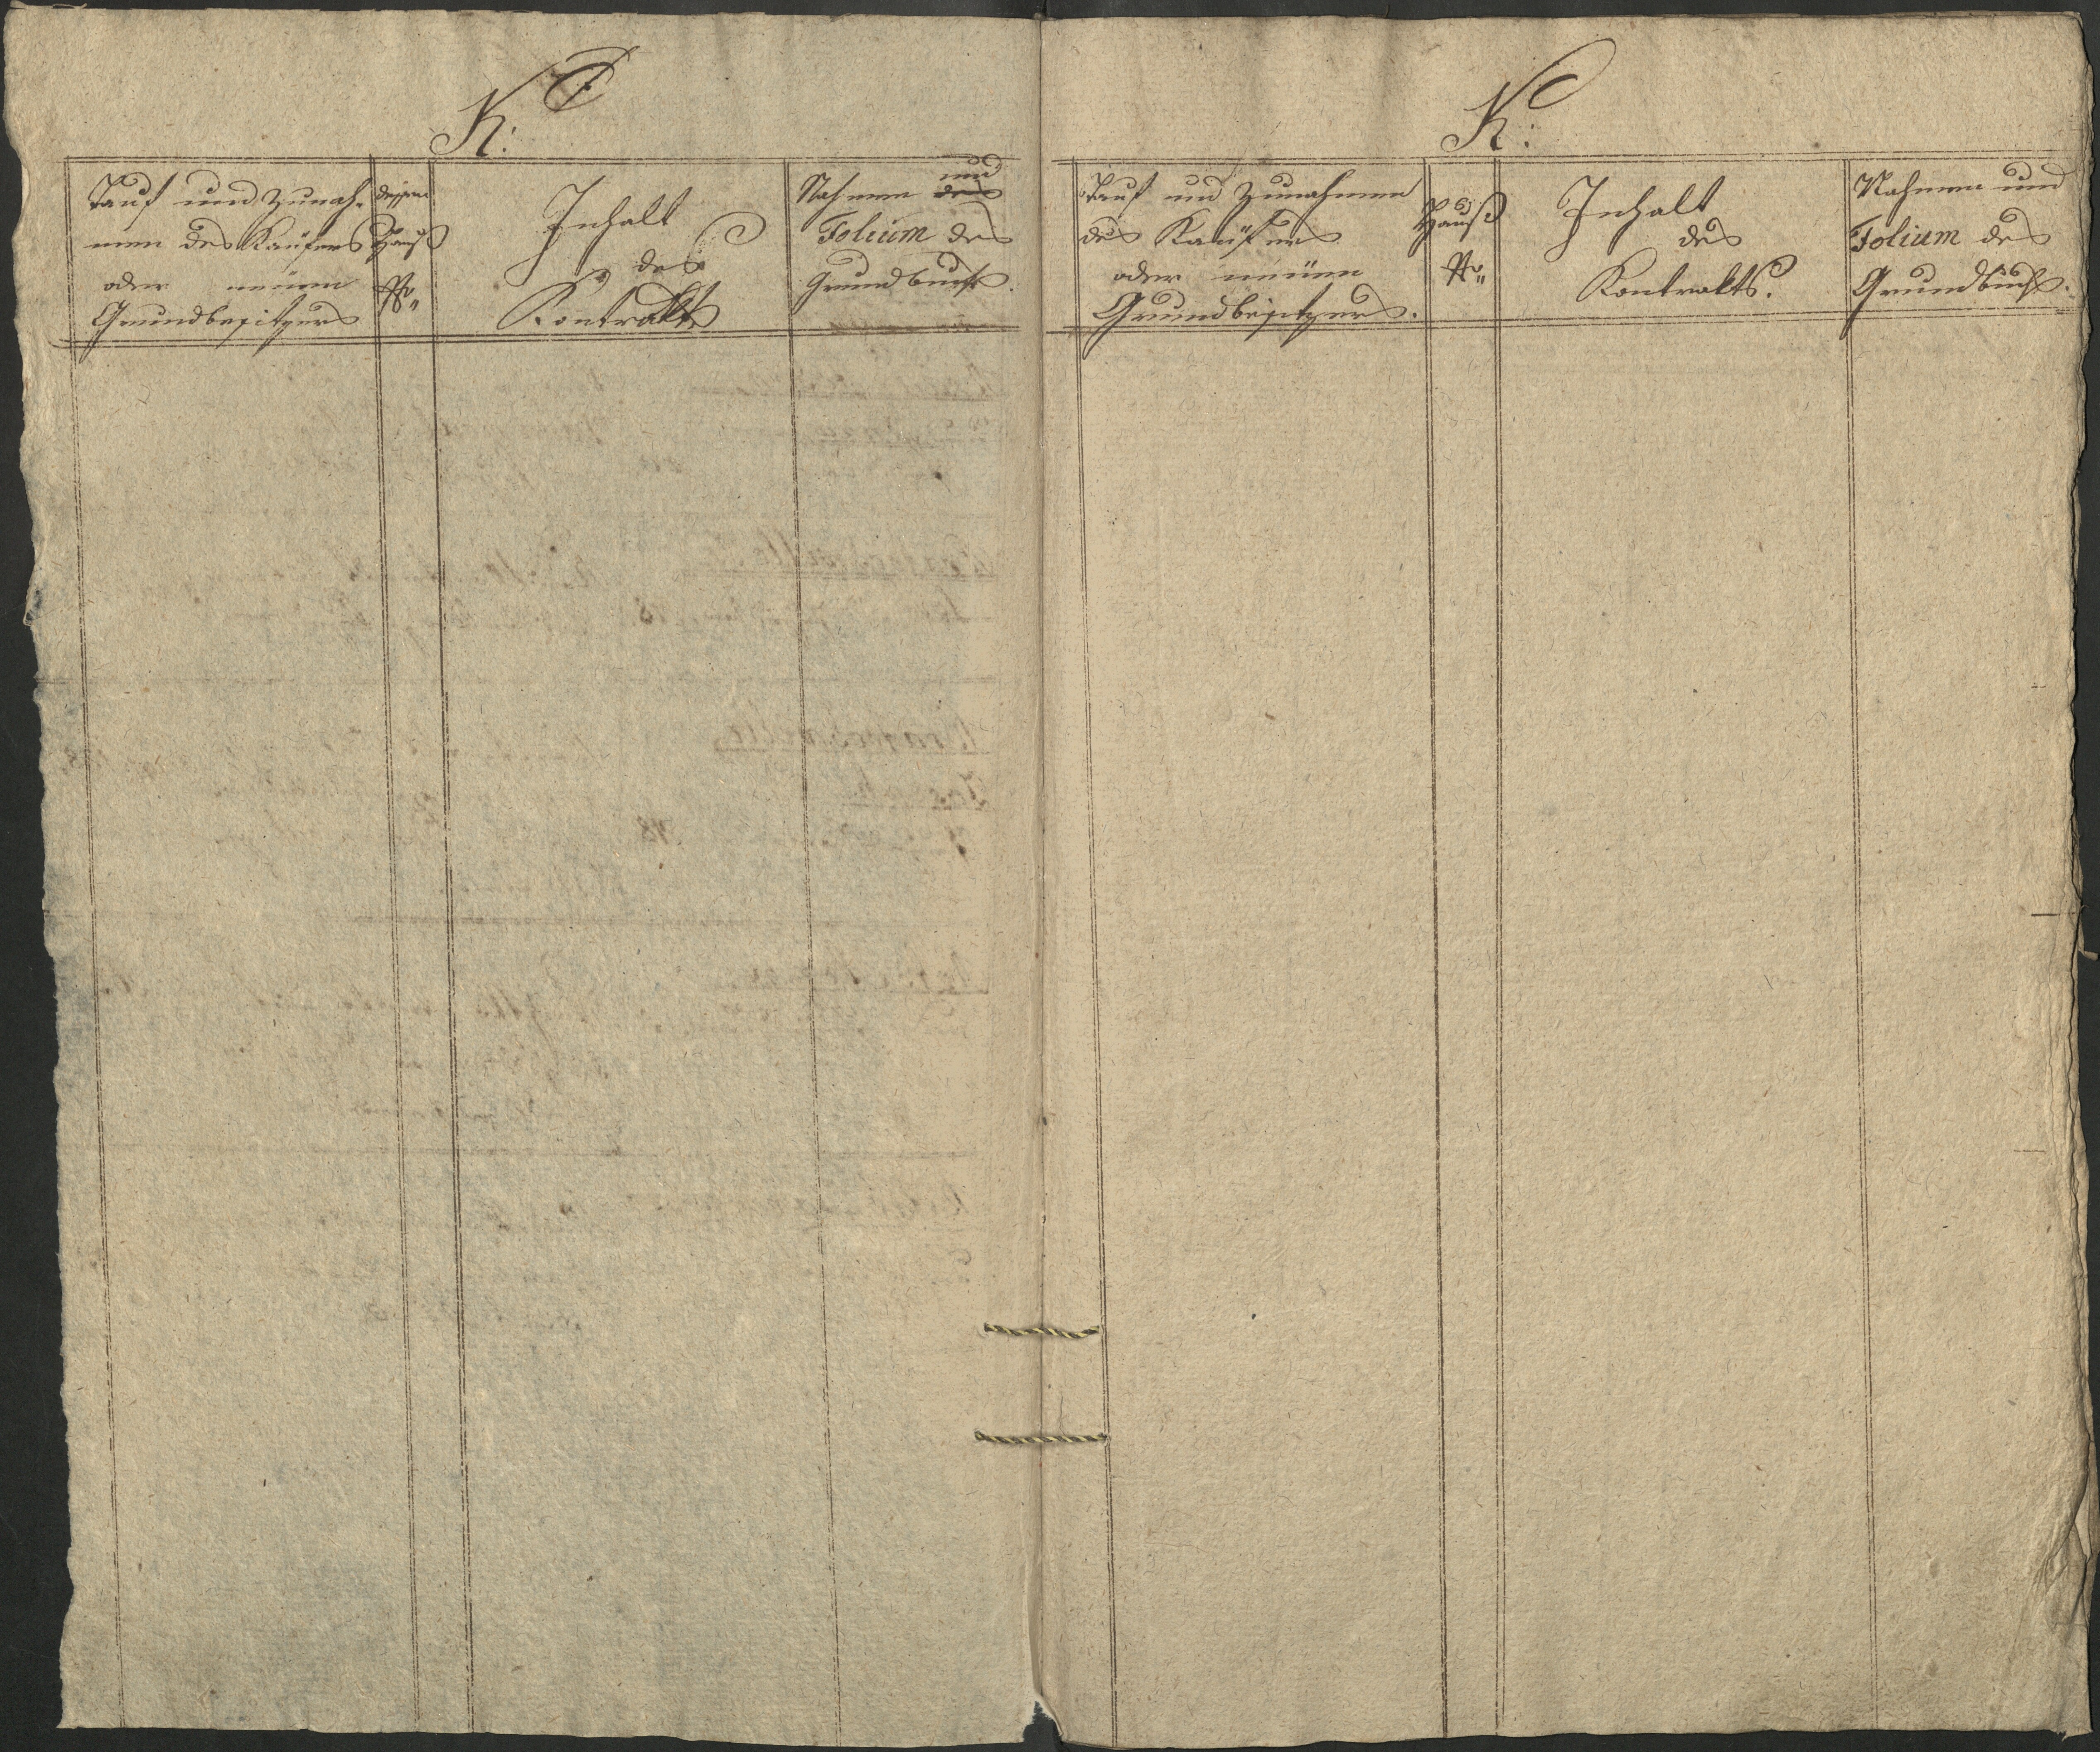 K:
Tauf und Zunah-
men des Kaüfers
oder neuen
Grundbesitzers
dessen
Hauß
Nro
Inhalt
des
Kontrakts
und
Nahmen des
Folium des
Grundbuchs.
K:
Tauf und Zunahmen
des Kaüfers
oder neüen
Grundbesitzers.
Hauß
Nro
Inhalt
des
Kontrakts.
Nahmen und
Folium des
Grundbuchs.